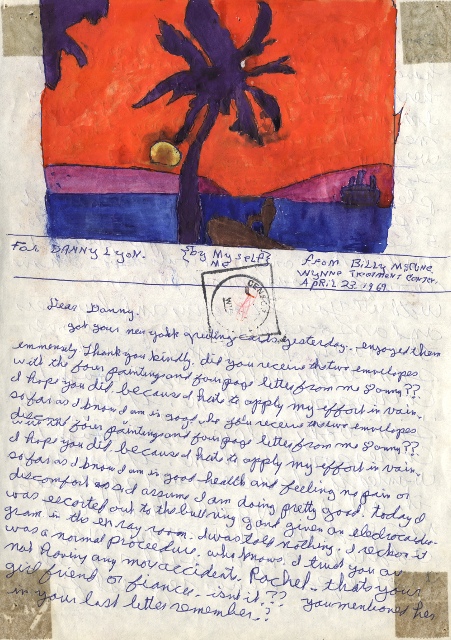 For DANNY LYON.
{by MySELF}
ME
from BILLY McCUNE
WYNNE TREATMENT CENTER.
APRIL 23 1969
CENSOR
Dear Danny,
got your new york greeting cards yesterday. enjoyed them
immensely. Thank you kindly. did you receive the two envelopes
with the four paintings and four page letter from me Danny??
I hope you did because I hate to apply my effort in vain.
so far as I know I am in good do you receive the two envelopes
with the four paintings and four page letter from me Danny??
I hope you did because I hate to apply my effort in vain.
so far as I know I am in good health and feeling no pain or
discomfort so I assume I am doing pretty good. today I
was escorted out to the bullring and given an electrocardio-
gram in the en ray room. I was told nothing. I reckon it
was a normal proceedure. who knows. I trust you are
not having any mos accidents. Rachel - thats your
girl friend or fiance - isnt it?? You mentioned her
in your last letter remember?